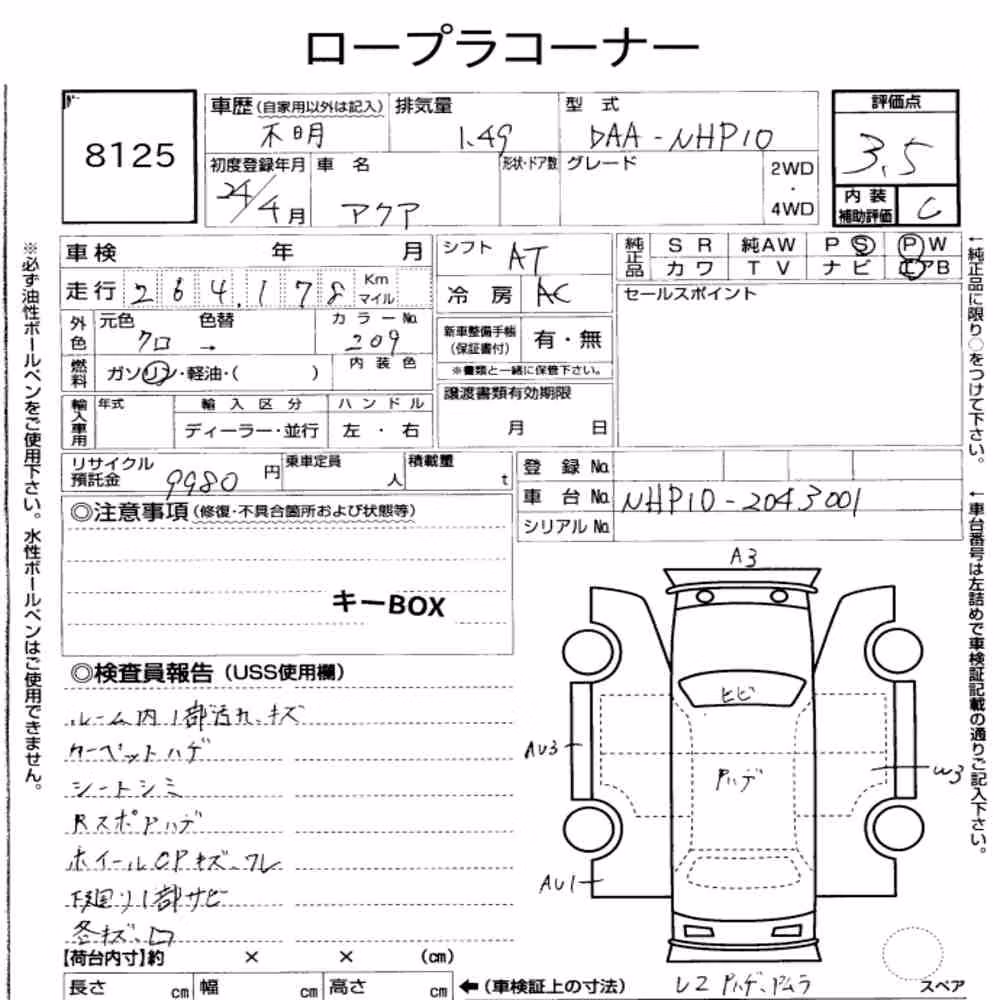 ロープラコーナー
8125
車歴 (自家用以外は記入) 排気量 型式 評価点
不明 1.49 DAA-NHP10 3.5
初度登録年月 車名 形状・ドア数 グレード 2WD・4WD
24/4月 アクア
内装補助評価 C
車検 年 月 シフト AT
純正品 SR 純AW PS PW
カワ TV ナビ エアB
走行 264,178 Km マイル 冷房 AC セールスポイント
外色 元色 色替 カラーNo.
クロ → 209
新車整備手帳(保証書付) 有・無
※書類と一緒に保管下さい。
燃料 ガソリン・軽油・( ) 内装色
譲渡書類有効期限
月 日
輸入車用 年式 輸入区分 ハンドル
ディーラー・並行 左・右
リサイクル預託金 9980円 乗車定員 人 積載量 t
登録No.
車台No. NHP10-2043001
シリアルNo.
◎注意事項 (修復・不具合箇所および状態等)
キーBOX
◎検査員報告 (USS使用欄)
ルーム内1部汚れ、キズ
カーペットハゲ
シートシミ
RスポPハゲ
ホイールCPキズ、ワレ
下廻り1部サビ
各キズ、凹
【荷台内寸】約 × × (cm)
長さ cm 幅 cm 高さ cm ←(車検証上の寸法)
A3
ヒビ
AU3
Pハゲ
W3
AU1
スペア
※必ず油性ボールペンをご使用下さい。水性ボールペンはご使用できません。
←純正品に限り○をつけて下さい。
←車台番号は左詰めで車検証記載の通りご記入下さい。